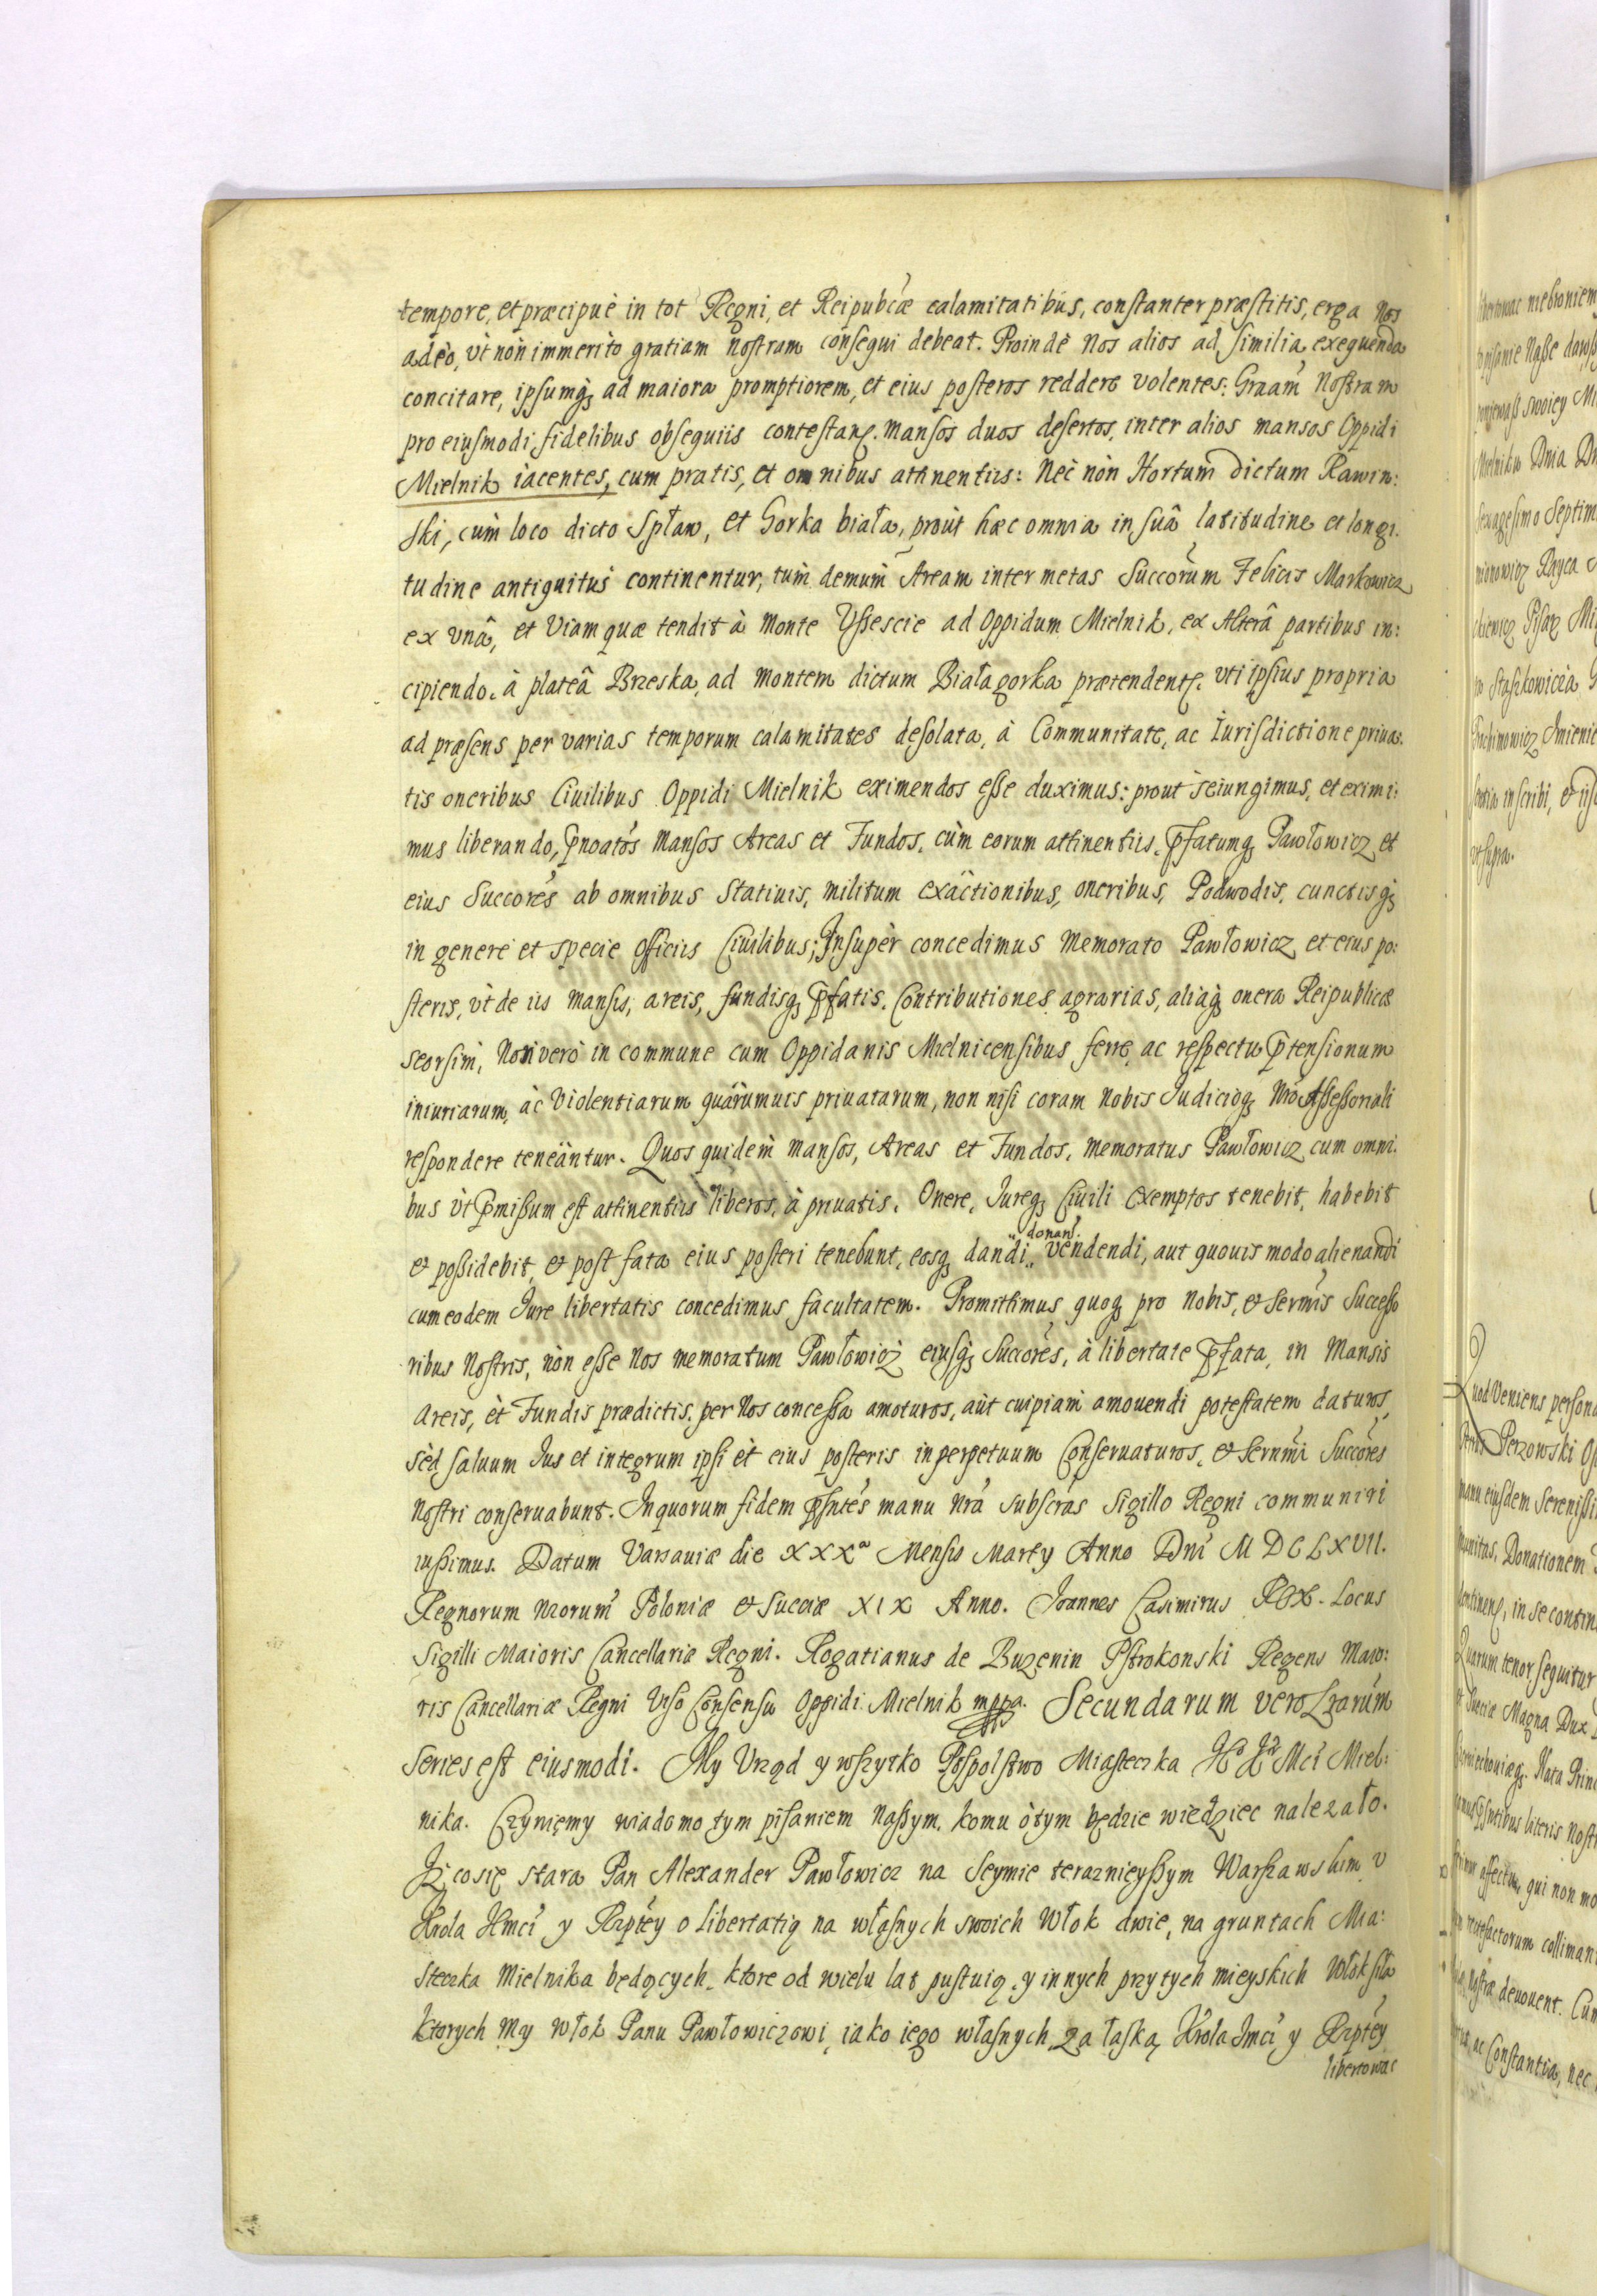 tempore, et præcipuè in tot Regni, et Reipubcæ calamitatibus, constanter præstitis, erga Nos
adeò, vt non immerito gratiam nostram consequi debeat. Proindè Nos alios ad similia exequenda
concitare, ipsumq; ad maiora promptiorem, et eius posteros reddere volentes: Graam Nostram
pro eiusmodi fidelibus obsequiis contestan. Mansos duos desertos, inter alios mansos Oppidi
Mielnik iacentes, cum pratis, et omnibus attinentiis: Nec nòn Hortum dictum Rawin:
ski, cùm loco dicto Spław, et Gorka biała, proùt hæc omnia in suâ latitudine et longi:
tudine antiquitus continentur, tùm demùm Aream inter metas Succorum Felicis Markowicz
ex vnâ, et Viam quæ tendit à Monte Vssescie ad Oppidum Mielnik, ex Alterâ partibus in:
cipiendo à plateâ Brzeska ad Montem dictum Białagorka prætenden. vti ipsius propria
ad præsens per varias temporum calamitates desolata, à Communitate, ac Iurisdictione priua:
tis oneribus Ciuilibus Oppidi Mielnik eximendos esse duximus: prout seiungimus, et eximi:
mus liberando, pnoatos Mansos Areas et Fundos, cùm eorum attinentiis, pfatumq; Pawłowicz et
eius Succores ab omnibus Statiuis, militum exactionibus, oneribus, Podwodis, cunctisq;
in genere et specie officiis Ciuilibus; Insupèr concedimus Memorato Pawłowicz et eius po:
steris, vt de iis Mansis, areis, fundisq; pfatis. Contributiones agrarias, aliaq; onera Reipublicæ
seorsim, Non verò in commune cum Oppidanis Mielnicensibus ferre, ac respectu ptensionum
iniuriarum, ac Violentiarum quarumuis priuatarum, non nisi coram Nobis Judicioq; Nro Assessoriali
respondere teneantur. Quos quidèm Mansos, Areas et Fundos, memoratus Pawłowicz cum omni:
bus vt pmissum est attinentiis liberos, à priuatis, Onere, Jureq; Ciuili Exemptos tenebit, habebit
donan.
et possidebit, et post fata eius posteri tenebunt, eosq; dandi, vendendi, aut quouis modo alienandi
cum eodem Jure libertatis concedimus facultatem. Promittimus quoq; pro Nobis, et Sermis Successo
ribus Nostris, nòn esse Nos memoratum Pawłowicz eiusq; Succores, à libertate pfata, in Mansis
Areis, et Fundis prædictis, per Nos concessa amoturos, aut cuipiam amouendi potestatem daturos,
sèd saluum Ius et integrum ipsi et eius posteris in perpetuum Conseruaturos, et Sernmi Succores
Nostri conseruabunt. In quorum fidem psntes manu Nra subscras Sigillo Regni communiri
iussimus. Datum Varsauiæ die XXXa Mensis Marty Anno Dni M D C L X VII.
Regnorum Nrorum Poloniæ et Sueciæ XIX Anno. Joannes Casimirus REX. Locus
Sigilli Maioris Cancellariæ Regni. Rogatianus de Buzenin Pstrokonski Regens Maio:
ris Cancellariæ Regni Viso Consensu Oppidi Mielnik mppa. Secundarum vero Lrarum
Series est eiusmodi. My Vrząd y wszytko Pospolstwo Miasteczka Mci Miel:
nika. Czyniemy wiadomo tym pisaniem Naszym, komu ò tym będzie wiedziec nalezało.
Iż co się stara Pan Alexander Pawłowicz na Seymie teraznieyszym Warszawskim v
Krola Jmci y Rzptey o Libertatią na własnych swoich Włok dwie, na gruntach Mia:
steczka Mielnika będących, ktore od wielu lat pustuią, y innych przy tych mieyskich Włok siła
Ktorych My Włok Panu Pawłowiczowi, iako iego własnych, za łaską Krola Jmci y Rzptey
libertowac